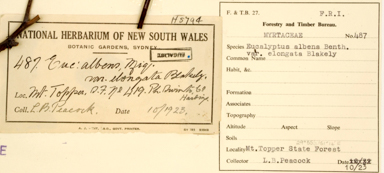 H5794
NATIONAL HERBARIUM OF NEW SOUTH WALES
BOTANIC GARDENS, SYDNEY.
487. Euc: albens, Miq.
var. elongata Blakely.
Loc. Mt. Topper, S.F. No 419.
Coll. L.B. Peacock. Date 10/1923.
F. & T.B. 27. F.R.I.
Forestry and Timber Bureau.
MYRTACEAE No. 487
Species Eucalyptus albens Benth.
var. elongata Blakely
Common Name
Habit, &c.
Formation
Associates
Topography
Altitude Aspect Slope
Soil
Locality Mt.Topper State Forest
Collector L.B.Peacock Date
10/23